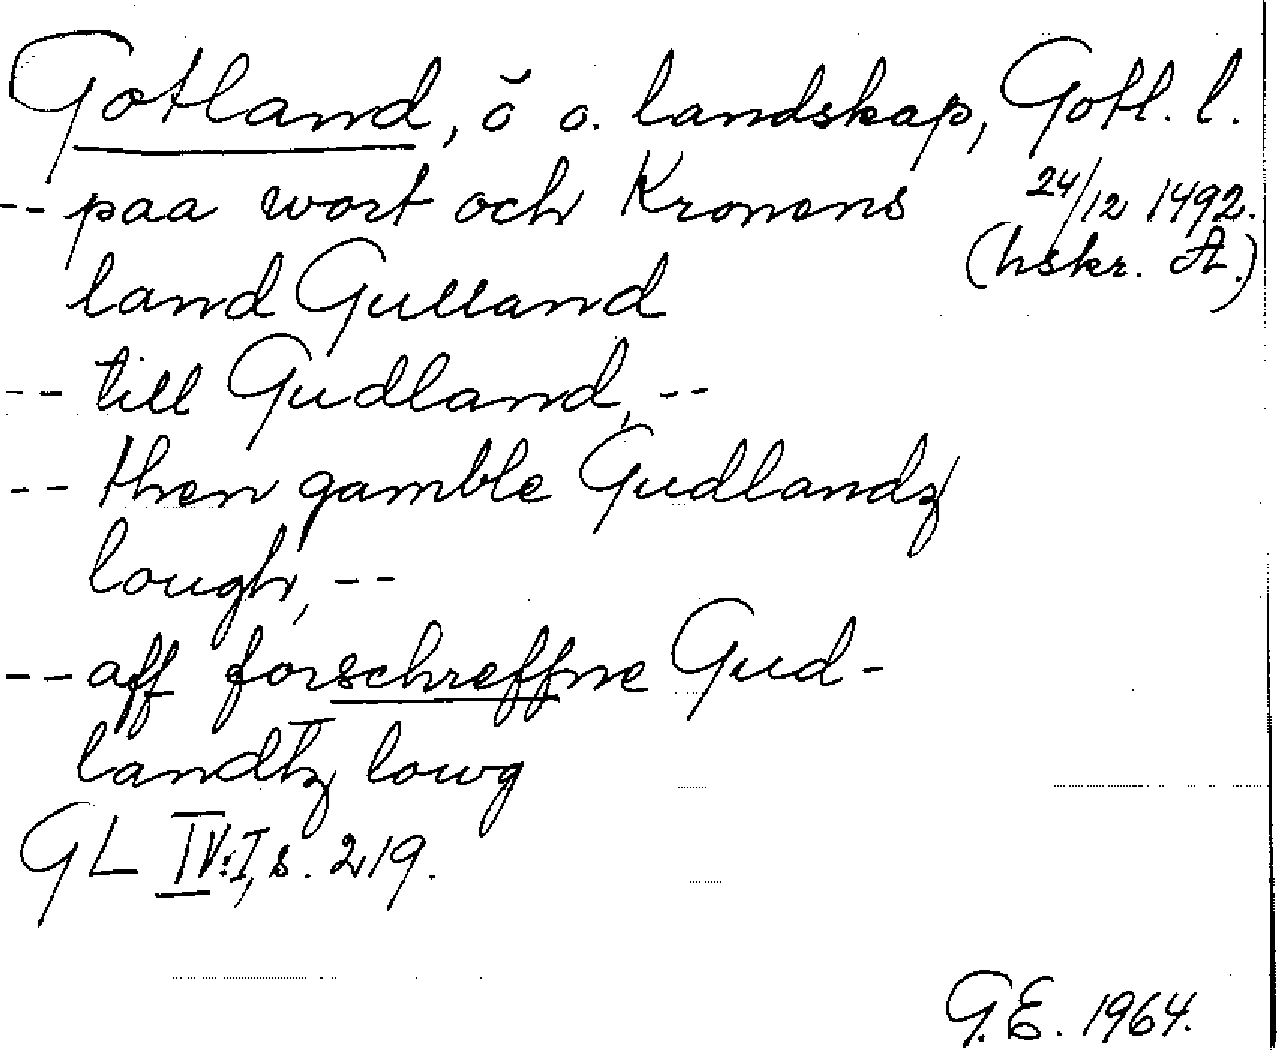 Gotland, ö o. landskap, Gotl. l.
-- paa wort och Kronens 24/12 1492.
land Gulland (hskr. A.)
-- till Gudland, --
-- then gamble Gudlandz
lough, --
-- aff forschreffne Gud-
landtz lowg
GL IV:I, s. 219.
G.E. 1964.